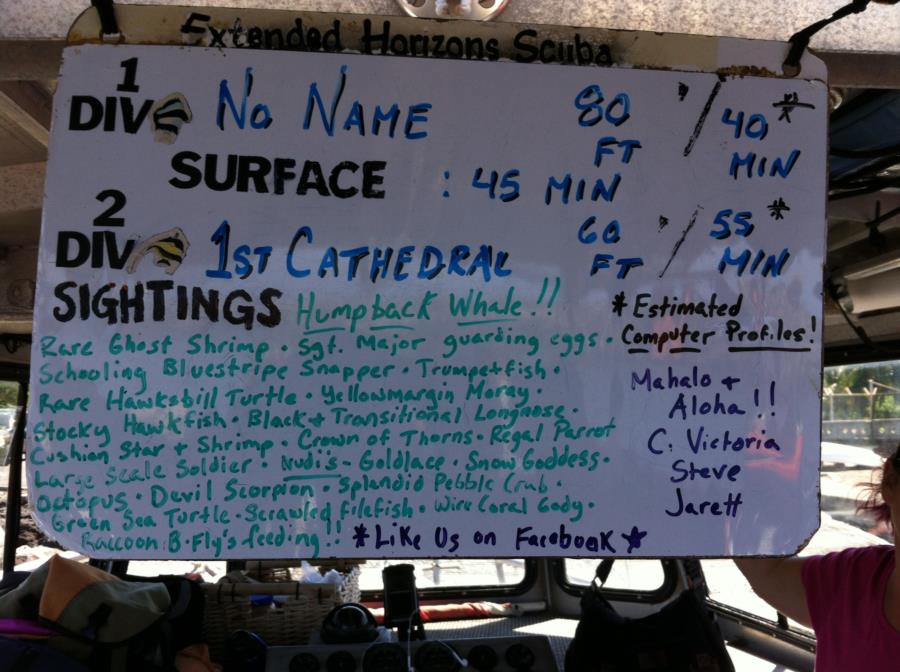 Extended Horizons Scuba
1 DIVE No NAME 80 FT / 40* MIN
SURFACE : 45 MIN
2 DIVE 1ST CATHEDRAL 60 FT / 55* MIN
SIGHTINGS Humpback Whale!!
Rare Ghost Shrimp · Sgt. Major guarding eggs ·
Schooling Bluestripe Snapper · Trumpetfish ·
Rare Hawksbill Turtle · Yellowmargin Moray ·
Stocky Hawkfish · Black + Transitional Longnose ·
Cushion Star + Shrimp · Crown of Thorns · Regal Parrot
Large Scale Soldier · Nudi's - Goldlace · Snow Goddess ·
Octopus · Devil Scorpion · Splendid Pebble Crab ·
Green Sea Turtle · Scrawled Filefish · Wire Coral Goby ·
Raccoon B·Fly's feeding!!
*Like Us on Facebook★
*Estimated
Computer Profiles!
Mahalo +
Aloha!!
C. Victoria
Steve
Jarett